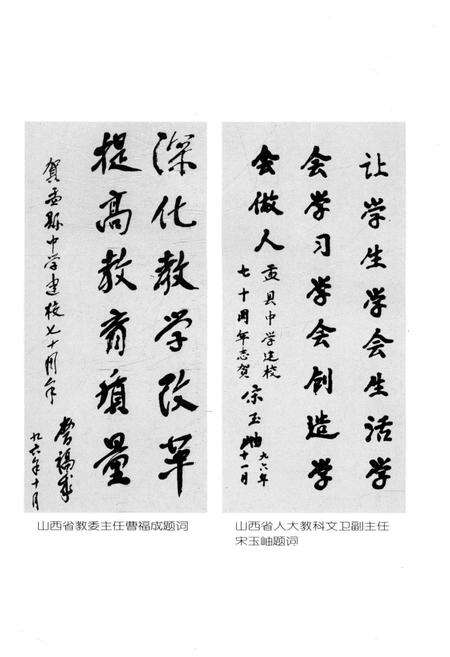 深化教学改革
提高教育质量
贺盂县中学建校七十周年
曹福成
九六年十月
山西省教委主任曹福成题词
让学生学会生活学
会学习学会创造学
会做人
盂县中学建校
七十周年志贺
宗玉岫
九六年
十一月
山西省人大教科文卫副主任
宋玉岫题词